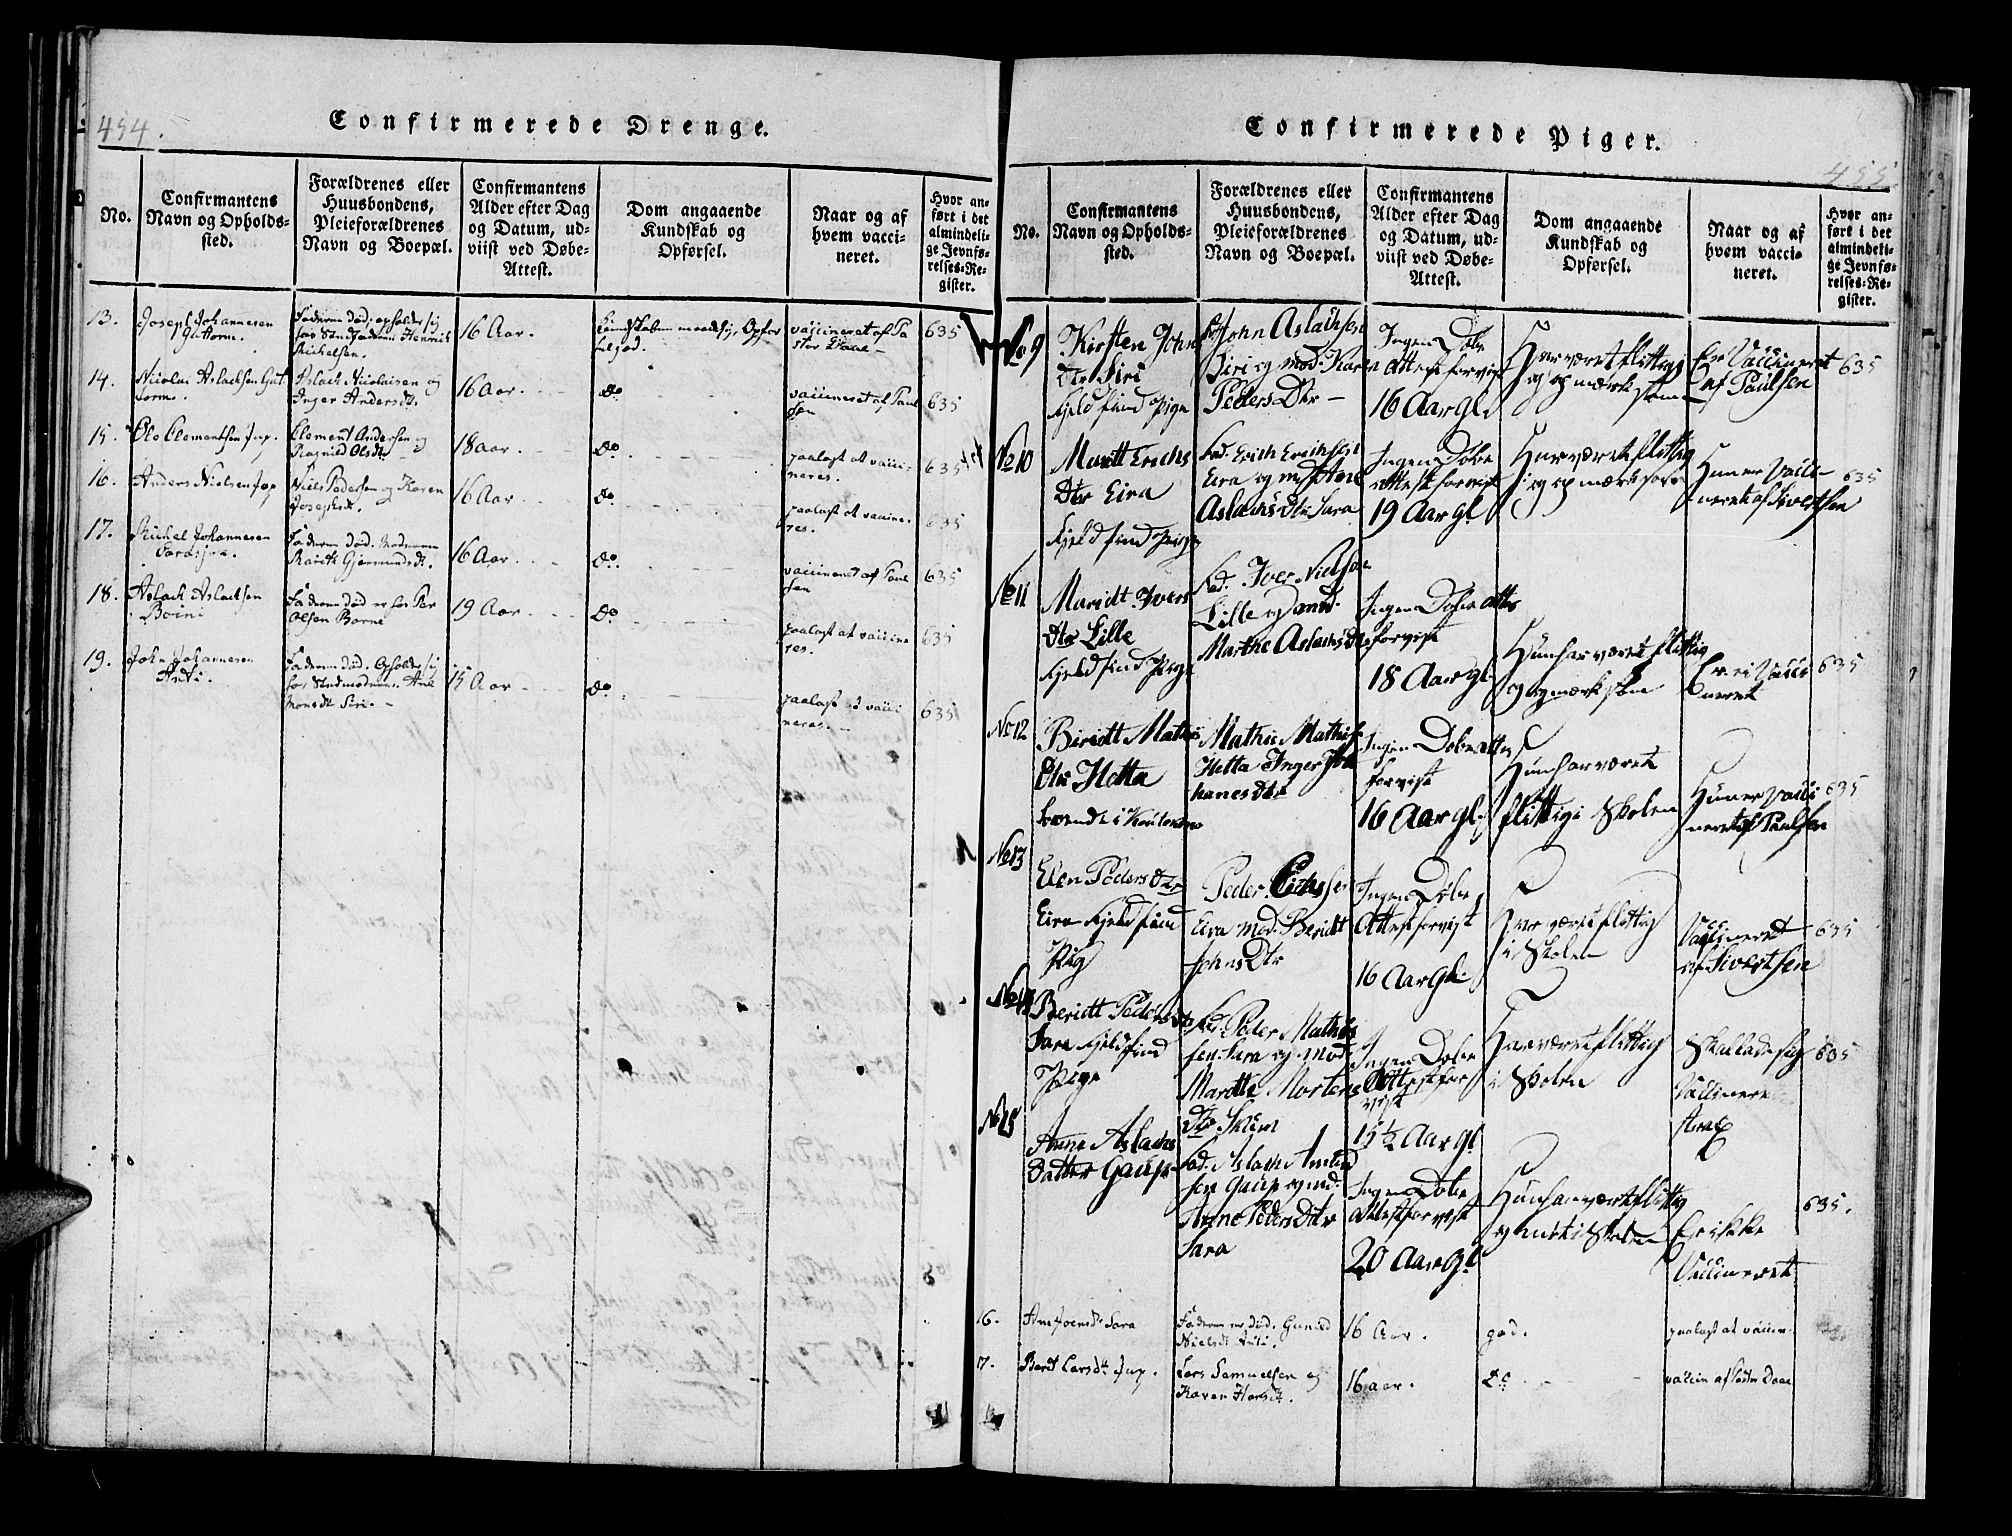 454.
Confirmerede Drenge.
No.
Confirmantens
Navn og Opholds-
sted.
Forældrenes eller
Huusbondens,
Pleieforældrenes
Navn og Boepæl.
Confirmantens
Alder efter Dag
og Datum, ud-
viist ved Døbe-
Attest.
Dom angaaende
Kundskab og
Opførsel.
Naar og af
hvem vacci-
neret.
Hvor an-
ført i det
almindeli-
ge Jevnfø-
relses-Re-
gister.
13.
Joseph Johannesen
Guttorm.
Faderen død. opholder sig
hos Stedfaderen Henrich
Michelsen.
16 Aar.
Kundskaben maadelig, Opfør
sel god.
vaccineret af Pa
stor Daae
635
14.
Nicolai Aslachsen Gut
torm.
Aslach Nicolaisen og
Inger Andersdt.
16 Aar.
do
vaccineret af Paul
sen
635
15.
Ole Clementsen Jup.
Clement Andersen og
Ragnild Olsdt.
18 aar.
do.
paalagt at vacci-
neres.
635
16.
Anders Nielsen Jup
Niels Pedersen og Karen
Josephsdt.
16 Aar
do
paalagt at vaccine-
res.
635
17.
Michel Johannesen
Faderen død. Moderen
Marith Gjermundsdt.
16 Aar
do.
vaccineret af Paul
sen
635
18.
Aslach Aslachsen
Boini
Faderen død er hos Per
Olsen Borne
19 Aar
do
paalagt at vaccine
res.
635
19.
John Johannesen
Anti.
Faderen død. Opholder sig
hos Stedmoderen Ane
Monsdt Siri.
15 Aar
do.
paalagt at vacci
neres.
635
Confirmerede Piger.
455
No.
Confirmantens
Navn og Opholds-
sted.
Forældrenes eller
Huusbondens,
Pleieforældrenes
Navn og Boepæl.
Confirmantens
Alder efter Dag
og Datum, ud-
viist ved Døbe-
Attest.
Dom angaaende
Kundskab og
Opførsel.
Naar og af
hvem vacci-
neret.
Hvor an-
ført i det
almindeli-
ge Jevnfø-
relses-Re-
gister.
No 9
Kirsten Johns
Dtr Siri
Fjeldfind Pige
Fad John Aslachsen
Siri og mod. Karen
Peders Dtr
Ingen Døbe
attest forvist
16 Aar gl.
Har været flittig
og opmærksom
Er Vaccineret
af Paulsen
635
No 10
Maritt Erichs
Dtr Eira
Fjeldfind Pige
Fad. Erich Erichsen
Eira og mod Ane
Aslachs Dtr Sara
Ingen Døbe
attest forvist
19 Aar gl.
Har været flittig
og opmærksom
Hun er Vacci-
neret af Sivertsen
635
No 11
Maridt Ivers
Dtr Lille
Fjeldfind Pige
Fad. Iver Nielsen
Lille og mod.
Marthe Aslachs Dtr
Ingen Døbe attes
forvist
18 Aar gl.
Hun har været flittig
og opmærksom
Er ei Vacci
neret
635
No 12
Biridt Mathis
Dtr Hetta
boende i Koutokeino
Mathis Mathis
Hetta Inger Jo
hanes Dtr
Ingen Døbe attes
forvist
16 Aar gl.
Hun har været
flittig i Skolen
Hun er Vacci
neret af Paulsen
635
No 13
Elen Peders Dtr
Eira Fjeldfind
Pig
Peder Erichsen
Eira mod. Beridt
Johns Dtr
Ingen Døbe
Attest forvist
16 Aar Gl.
Har været flittig
i Skolen
Vaccineret
af Sivertsen
635
No 14
Beridt Peders Dtr
Sara Fjeldfind
Pige
Fad. Peder Mathis
sen Sara og mod.
Maritte Mortens
Dtr Skum
Ingen Døbe
Attest for
vist
15½ Aar gl
Har været flittig
i Skolen
Skal lade sig
Vaccinere
strax
635
No 15
Anne Aslachs
Datter Gaup
Fad. Aslach Amund
sen Gaup og mod.
Anne Peders Dtr
Sara
Ingen Døbe
attest forvist
20 Aar Gl
Hun har været flittig
Er ikke
Vaccineret
635.
16.
Ane Joensdt Sara
Faderen er død. Gunild
Nielsdt Anti.
16 Aar.
god.
paalagt at vaccin-
17.
Berit Larsdt Jup.
Lars Samuelsen og
Karen Hansdt.
16 aar.
do
vaccin af Pastor Daae